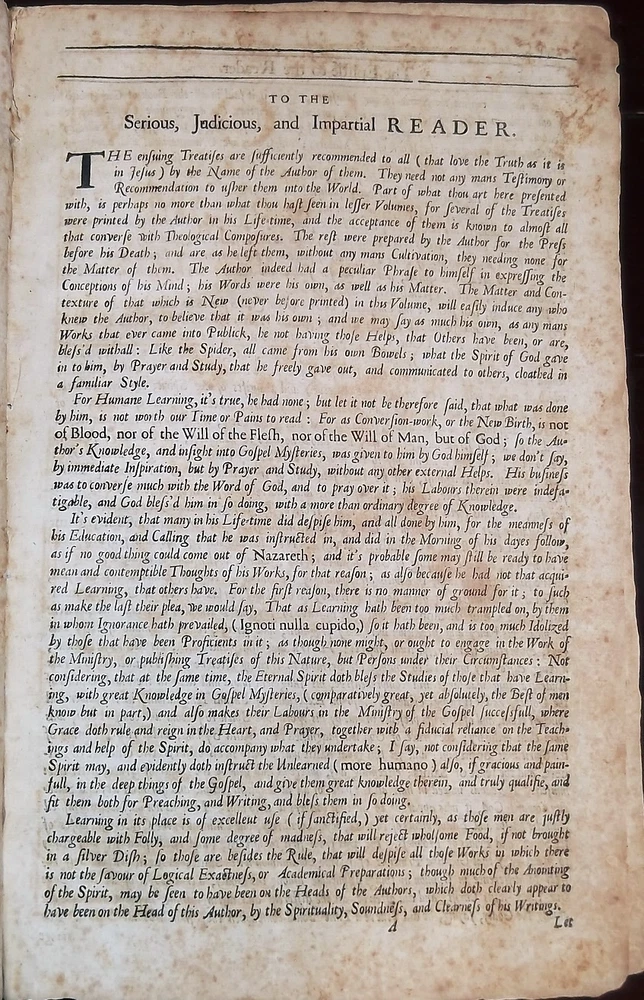 TO THE
Serious, Judicious, and Impartial READER.
THE ensuing Treatises are sufficiently recommended to all ( that love the Truth as it is
in Jesus ) by the Name of the Author of them. They need not any mans Testimony or
Recommendation to usher them into the World. Part of what thou art here presented
with, is perhaps no more than what thou hast seen in lesser Volumes, for several of the Treatises
were printed by the Author in his Life-time, and the acceptance of them is known to almost all
that converse with Theological Composures. The rest were prepared by the Author for the Press
before his Death ; and are as he left them, without any mans Cultivation, they needing none for
the Matter of them. The Author indeed had a peculiar Phrase to himself in expressing the
Conceptions of his Mind ; his Words were his own, as well as his Matter. The Matter and Con-
texture of that which is New (never before printed) in this Volume, will easily induce any who
knew the Author, to believe that it was his own ; and we may say as much his own, as any mans
Works that ever came into Publick, he not having those Helps, that Others have been, or are,
bless'd withall : Like the Spider, all came from his own Bowels ; what the Spirit of God gave
in to him, by Prayer and Study, that he freely gave out, and communicated to others, cloathed in
a familiar Style.
For Humane Learning, it's true, he had none ; but let it not be therefore said, that what was done
by him, is not worth our Time or Pains to read : For as Conversion-work, or the New Birth, is not
of Blood, nor of the Will of the Flesh, nor of the Will of Man, but of God ; so the Au-
thor's Knowledge, and insight into Gospel Mysteries, was given to him by God himself ; we don't say,
by immediate Inspiration, but by Prayer and Study, without any other external Helps. His business
was to converse much with the Word of God, and to pray over it ; his Labours therein were indefa-
tigable, and God bless'd him in so doing, with a more than ordinary degree of Knowledge.
It's evident, that many in his Life-time did despise him, and all done by him, for the meanness of
his Education, and Calling that he was instructed in, and did in the Morning of his dayes follow,
as if no good thing could come out of Nazareth ; and it's probable some may still be ready to have
mean and contemptible Thoughts of his Works, for that reason ; as also because he had not that acqui-
red Learning, that others have. For the first reason, there is no manner of ground for it ; to such
as make the last their plea, we would say, That as Learning hath been too much trampled on, by them
in whom Ignorance hath prevailed, ( Ignoti nulla cupido,) so it hath been, and is too much Idolized
by those that have been Proficients in it ; as though none might, or ought to engage in the Work of
the Ministry, or publishing Treatises of this Nature, but Persons under their Circumstances : Not
considering, that at the same time, the Eternal Spirit doth bless the Studies of those that have Learn-
ing, with great Knowledge in Gospel Mysteries, ( comparatively great, yet absolutely, the Best of men
know but in part,) and also makes their Labours in the Ministry of the Gospel successfull, where
Grace doth rule and reign in the Heart, and Prayer, together with a fiducial reliance on the Teach-
ings and help of the Spirit, do accompany what they undertake ; I say, not considering that the same
Spirit may, and evidently doth instruct the Unlearned ( more humano ) also, if gracious and pain-
full, in the deep things of the Gospel, and give them great knowledge therein, and truly qualifie, and
fit them both for Preaching, and Writing, and bless them in so doing.
Learning in its place is of excellent use ( if sanctified, ) yet certainly, as those men are justly
chargeable with Folly, and some degree of madness, that will reject wholsome Food, if not brought
in a silver Dish ; so those are besides the Rule, that will despise all those Works in which there
is not the savour of Logical Exactness, or Academical Preparations ; though much of the Anointing
of the Spirit, may be seen to have been on the Heads of the Authors, which doth clearly appear to
have been on the Head of this Author, by the Spirituality, Soundness, and Clearness of his Writings.
A
Let